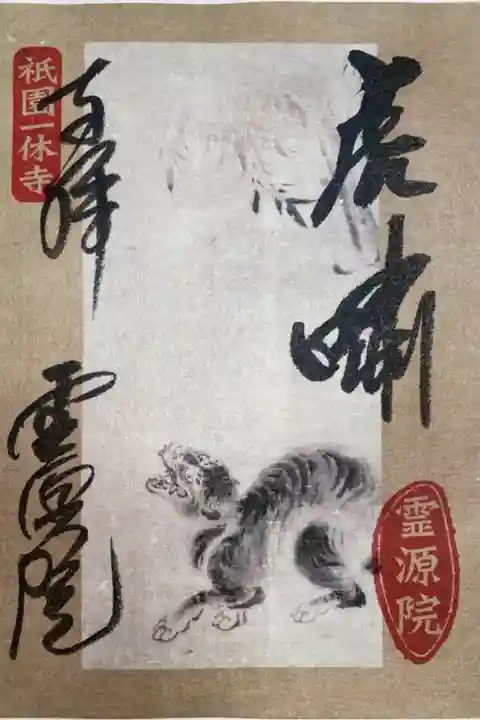 虎嘯
霊源院
奉拝
霊源院
祇園一休寺